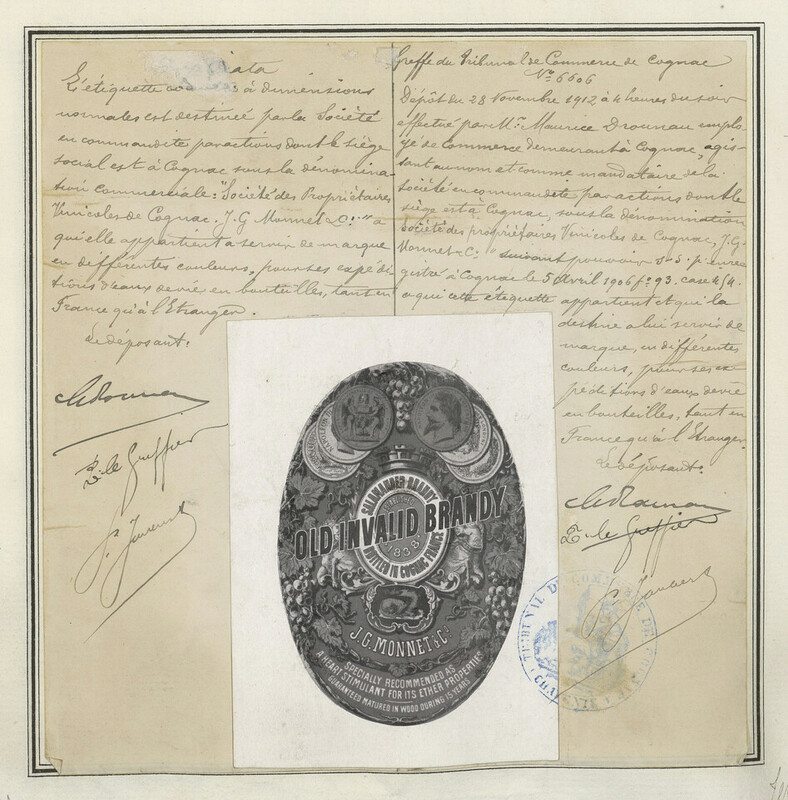 L'étiquette à dimensions
normales est destinée par la Société
en commandite par actions dont le siège
social est à Cognac sous la dénomina-
tion commerciale: "Société des Propriétaires
Vinicoles de Cognac. J. G Monnet & Cie" a
qu'elle appartient a servir de marque
en différentes couleurs, pour ses expédi-
tions d'eaux de vie en bouteilles, tant en
France qu'à l'Etranger.
Le déposant.
P. le Greffier
Greffe du Tribunal de Commerce de Cognac
No 6606
Dépôt du 28 Novembre 1912 à 4 heures du soir
effectué par Mr. Maurice Drounau emplo-
yé de commerce demeurant à Cognac, agis-
sant au nom et comme mandataire de la
Société en commandite par actions dont le
siège est à Cognac, sous la dénomination
Société des propriétaires Vinicoles de Cognac, J. G.
Monnet & Co. suivant pouvoir s. s. p. enre
gistré à Cognac le 5 Avril 1906 fo. 93. case 4/4.
a qui cette étiquette appartient et qui la
destine a lui servir de
marque, en différentes
couleurs, pour ses ex
péditions d'eaux de vie
en bouteilles, tant en
France qu'à l'Etranger.
Le déposant.
P. le Greffier
TRIBUNAL DE COMMERCE DE
CHARENTE
SALAMANDER BRANDY
OLD INVALID BRANDY
1838
BOTTLED IN COGNAC FRANCE
J.G. MONNET & Co.
SPECIALLY RECOMMENDED AS
A HEART STIMULANT FOR ITS ETHER PROPERTIES
GUARANTEED MATURED IN WOOD DURING 15 YEARS